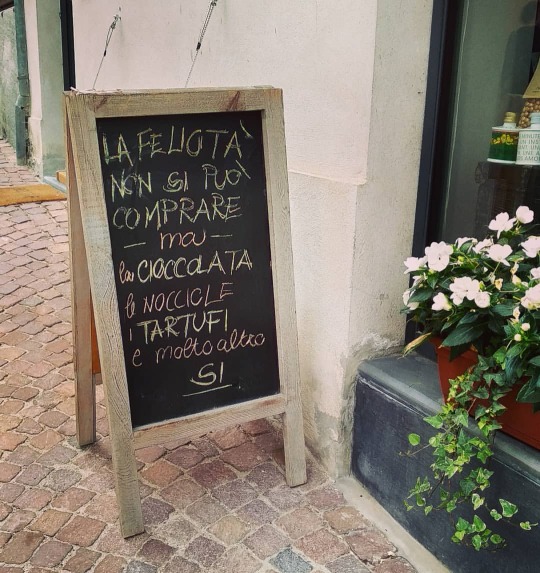 LA FELICITA'
NON SI PUO'
COMPRARE
— ma —
la CIOCCOLATA
le NOCCIOLE
i TARTUFI
e molto altro
SI